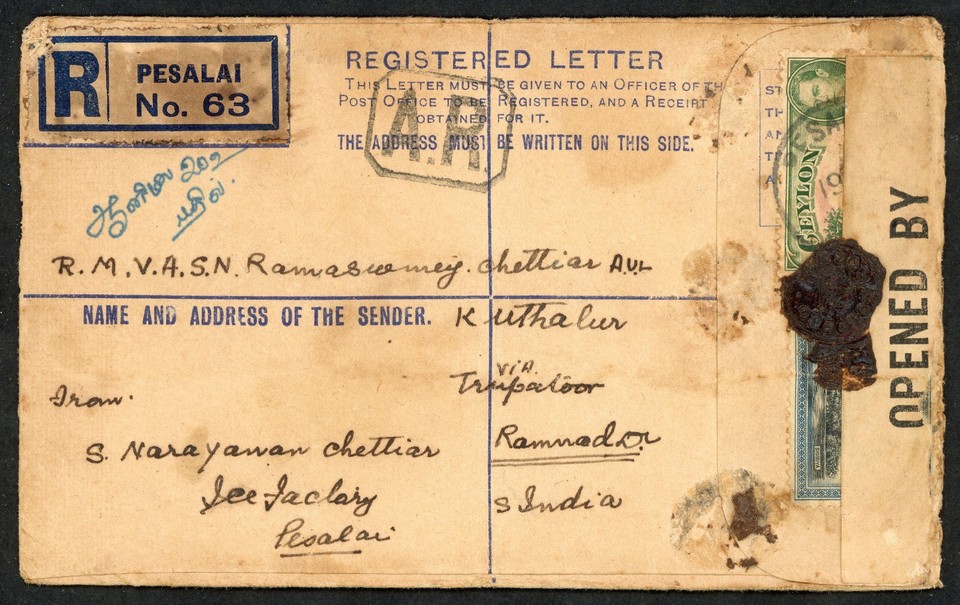 R
PESALAI
No. 63
REGISTERED LETTER
THIS LETTER MUST BE GIVEN TO AN OFFICER OF TH
POST OFFICE TO BE REGISTERED, AND A RECEIPT
OBTAINED FOR IT.
THE ADDRESS MUST BE WRITTEN ON THIS SIDE.
A.R
ST
TH
AN
CEYLON
19
OPENED BY
பதில்.
R.M.V.A.S.N. Ramaswamy. chettiar
NAME AND ADDRESS OF THE SENDER.
Kuthalur
via
Trupatoor
Ramnad Dr
S India
From.
S. Narayanan chettiar
Ice Factory
Pesalai